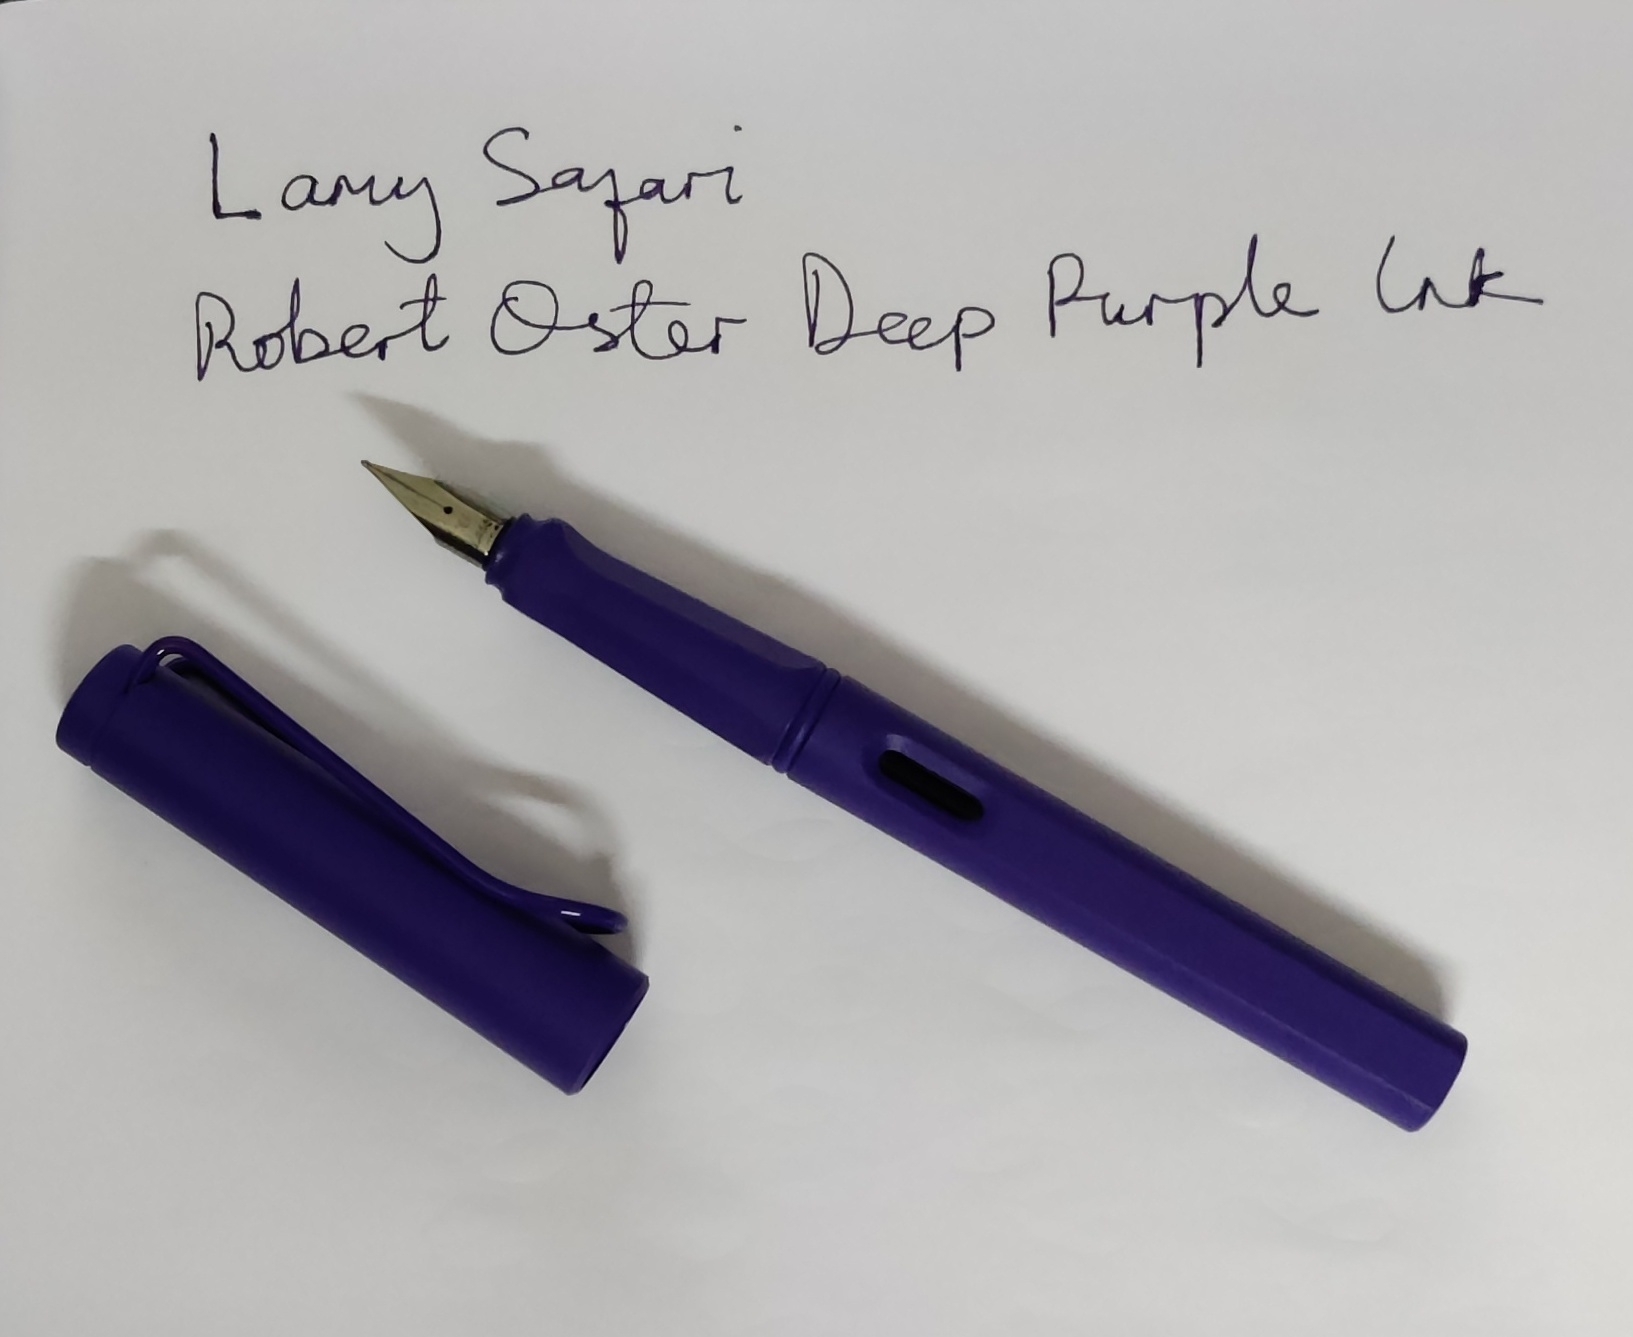 Lamy Safari
Robert Oster Deep Purple Ink